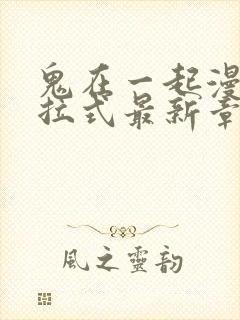 鬼在一起漫
拉式最新章
風之靈韵